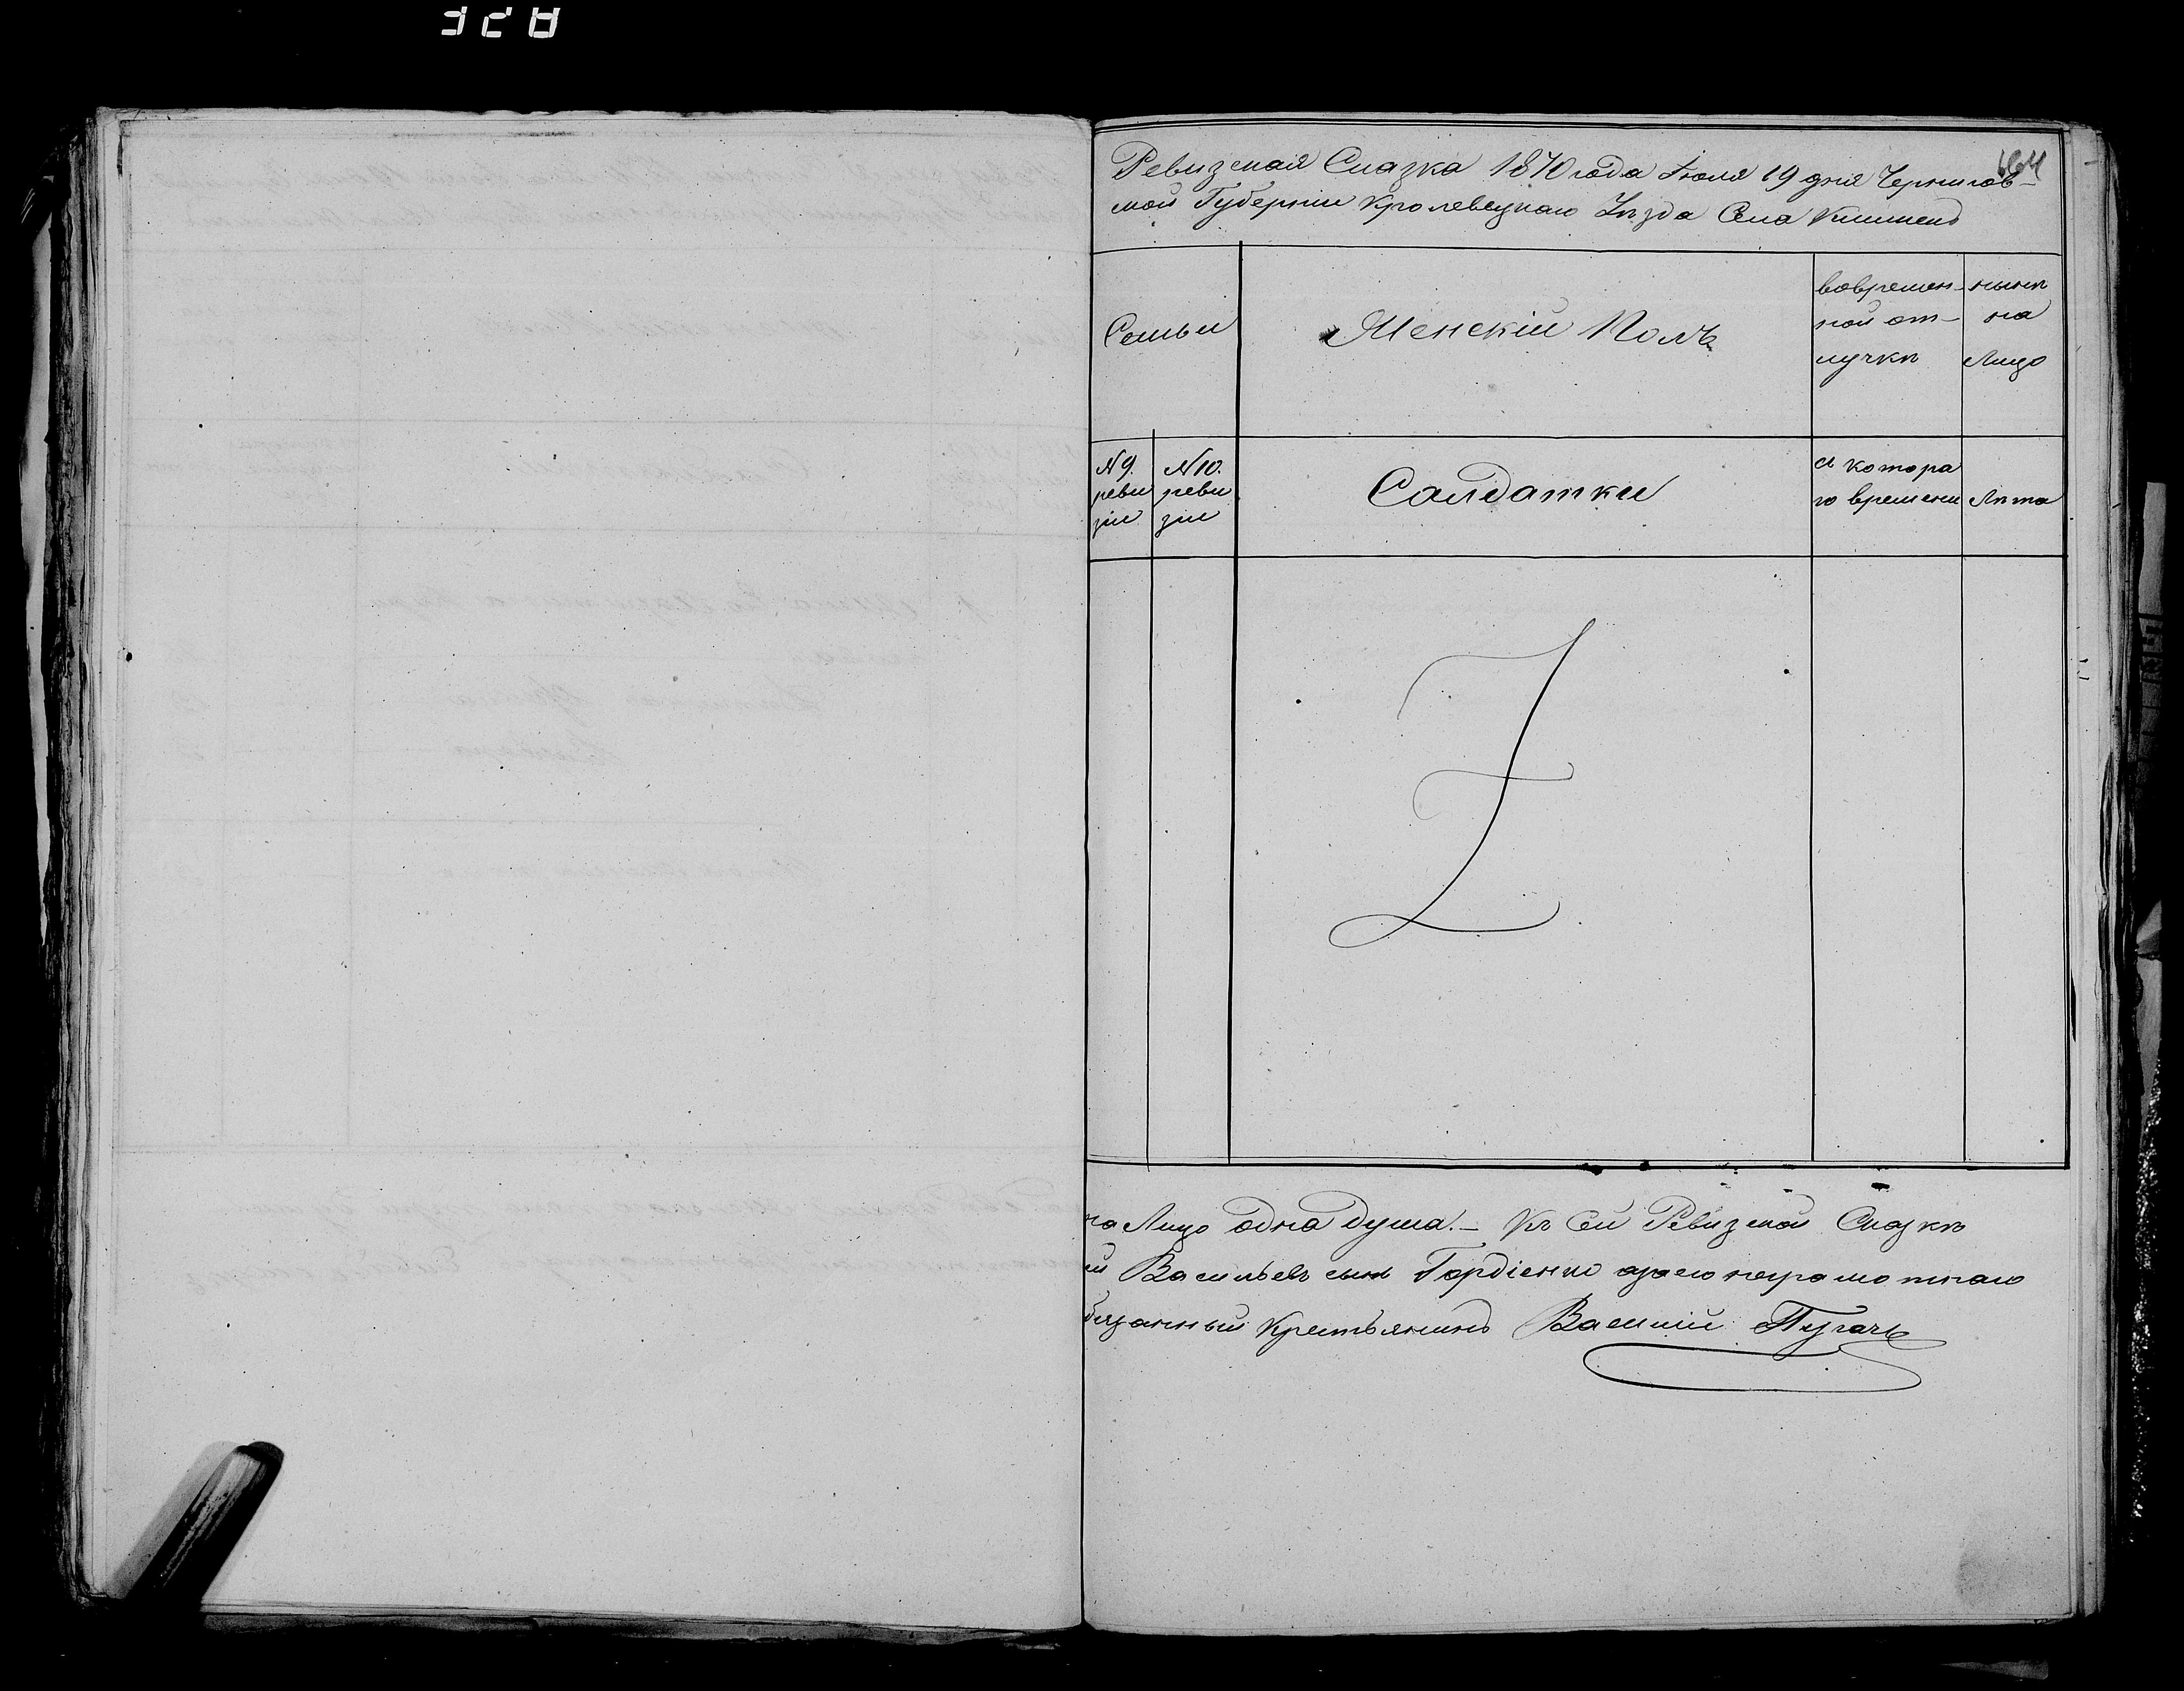 328
Ревизская Сказка 1870 года Июля 19 дня Чернигов-
ской Губернии Кролевецкаго Уѣзда Села
Семьи
Женскій Полъ
вовремен-
ной от-
лучкѣ
нынѣ
на
Лицо
N 9.
реви
зіи
N 10.
реви
зіи
Салдатки
съ котора
го времени
Лѣта
на Лицо одна душа. — Къ Сей Ревизской Сказкѣ
й Васильевъ сынъ Гордіенко а за его неграмотнаго
бязанный Крестьянинъ Василій Пугачь